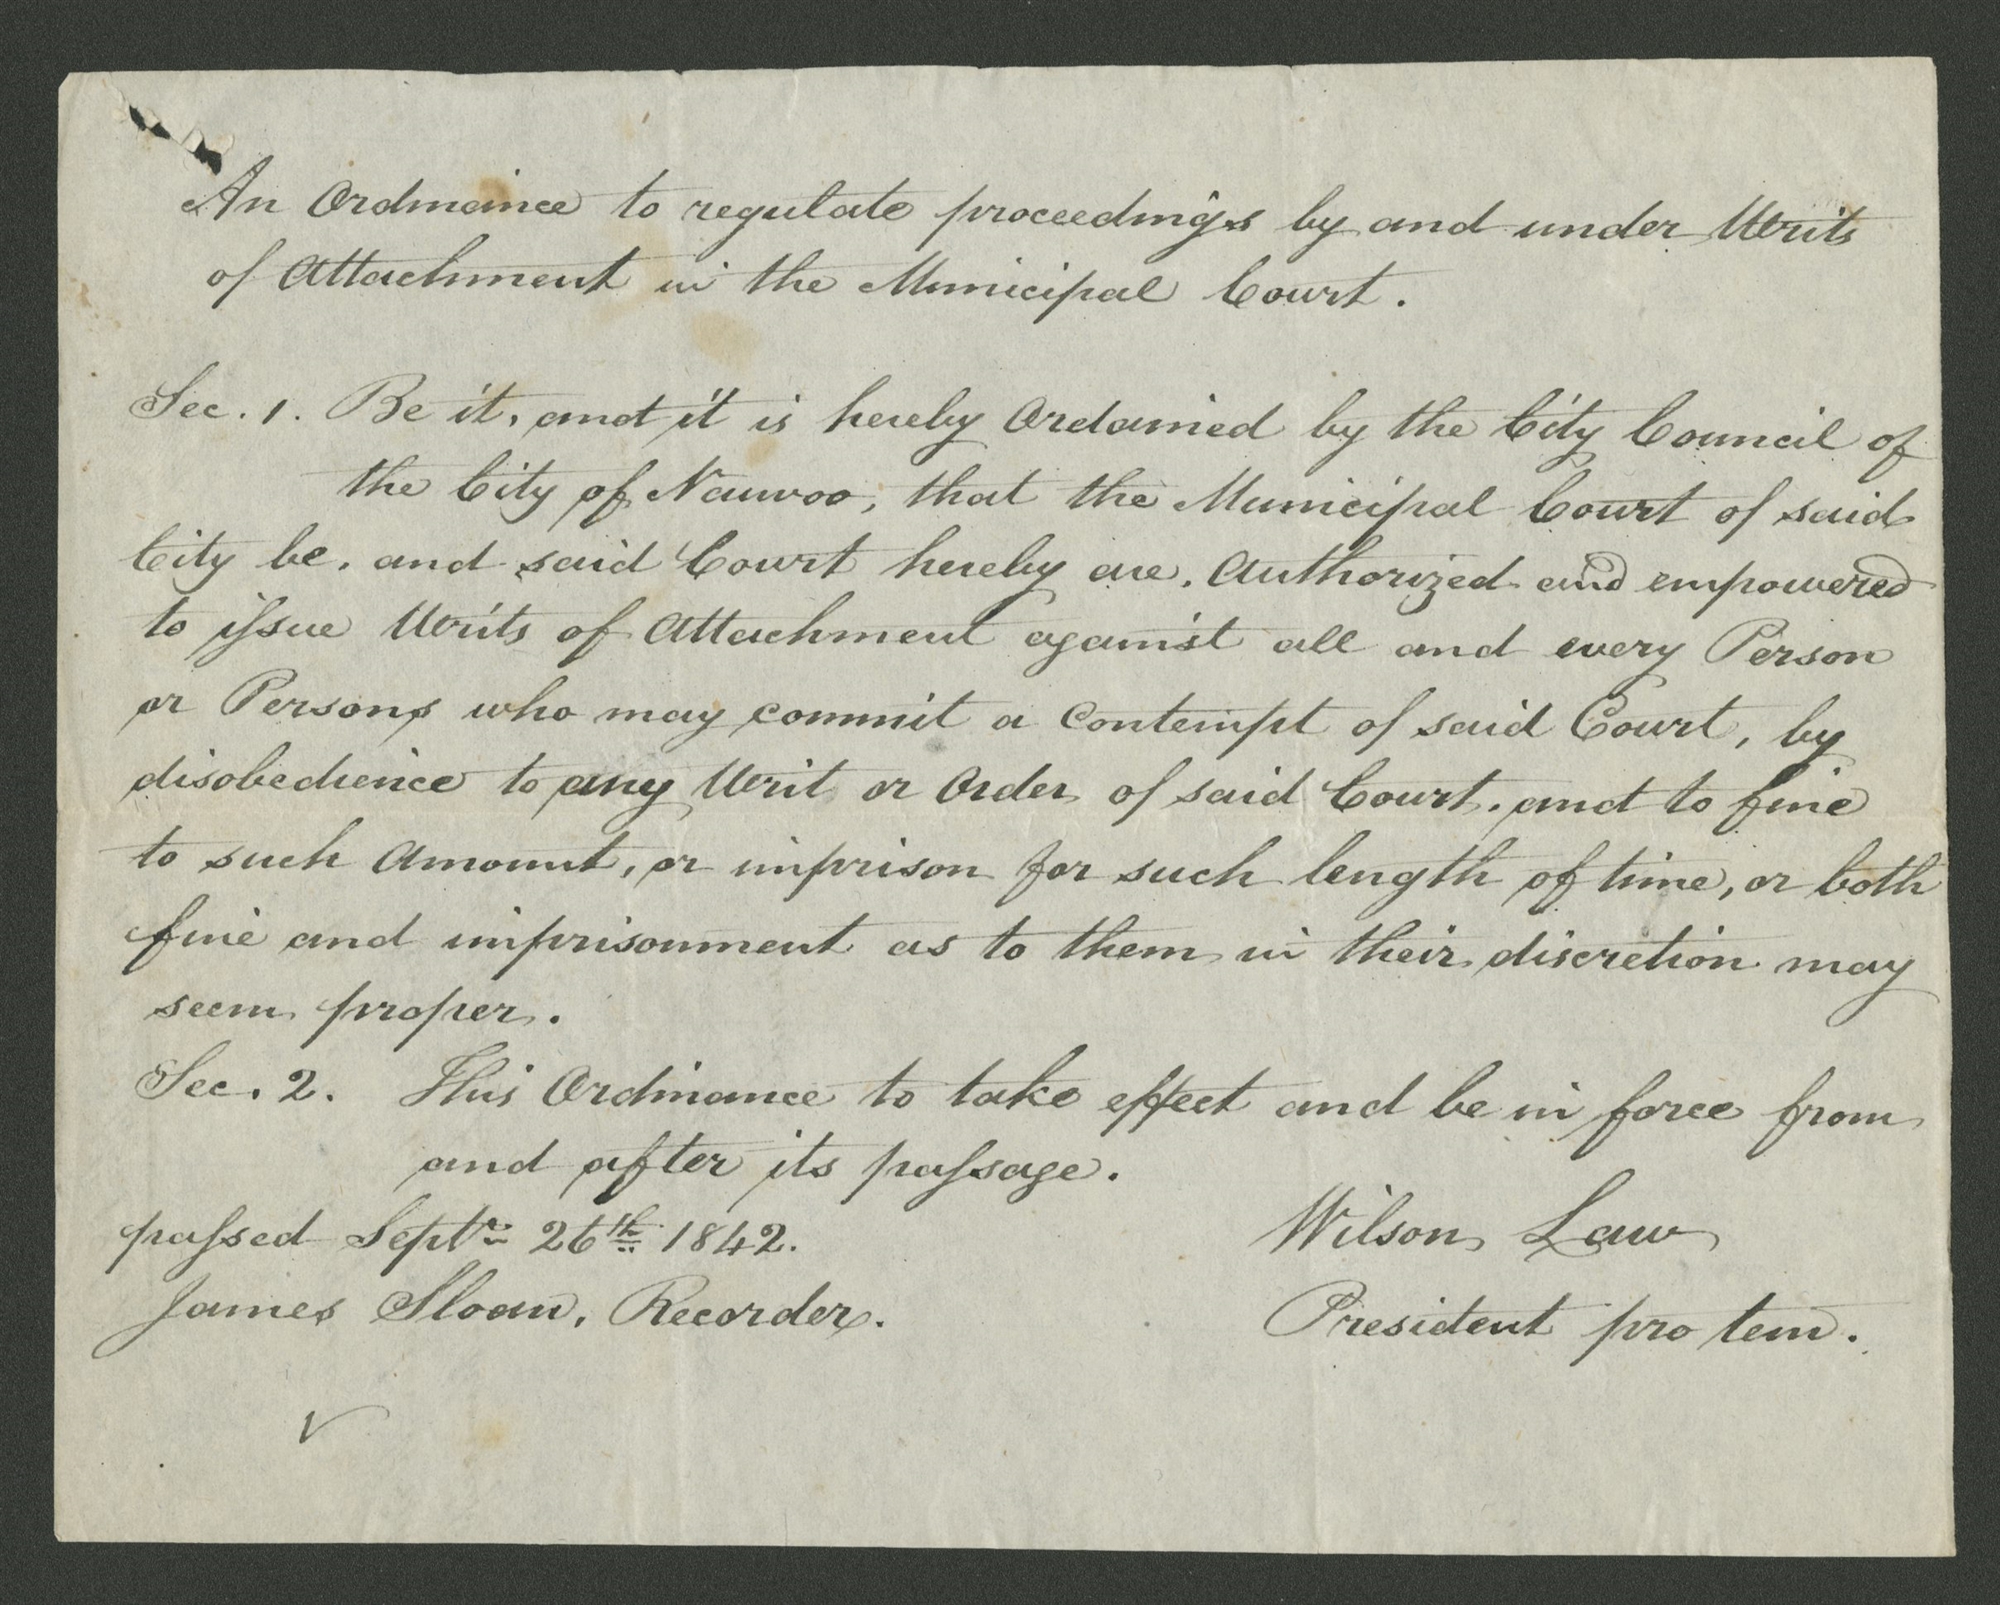 An Ordinance to regulate proceedings by and under Writs
of Attachment in the Municipal Court.
Sec. 1. Be it, and it is hereby Ordained by the City Council of
the City of Nauvoo, that the Municipal Court of said
City be, and said Court hereby are, Authorized and empowered
to issue Writs of Attachment against all and every Person
or Persons who may commit a Contempt of said Court, by
disobedience to any Writ or Order of said Court, and to fine
to such Amount, or imprison for such length of time, or both
fine and imprisonment as to them in their discretion may
seem proper.
Sec. 2. This Ordinance to take effect and be in force from
and after its passage.
passed Septr. 26th 1842.
Wilson Law
James Sloan, Recorder.
President pro tem.